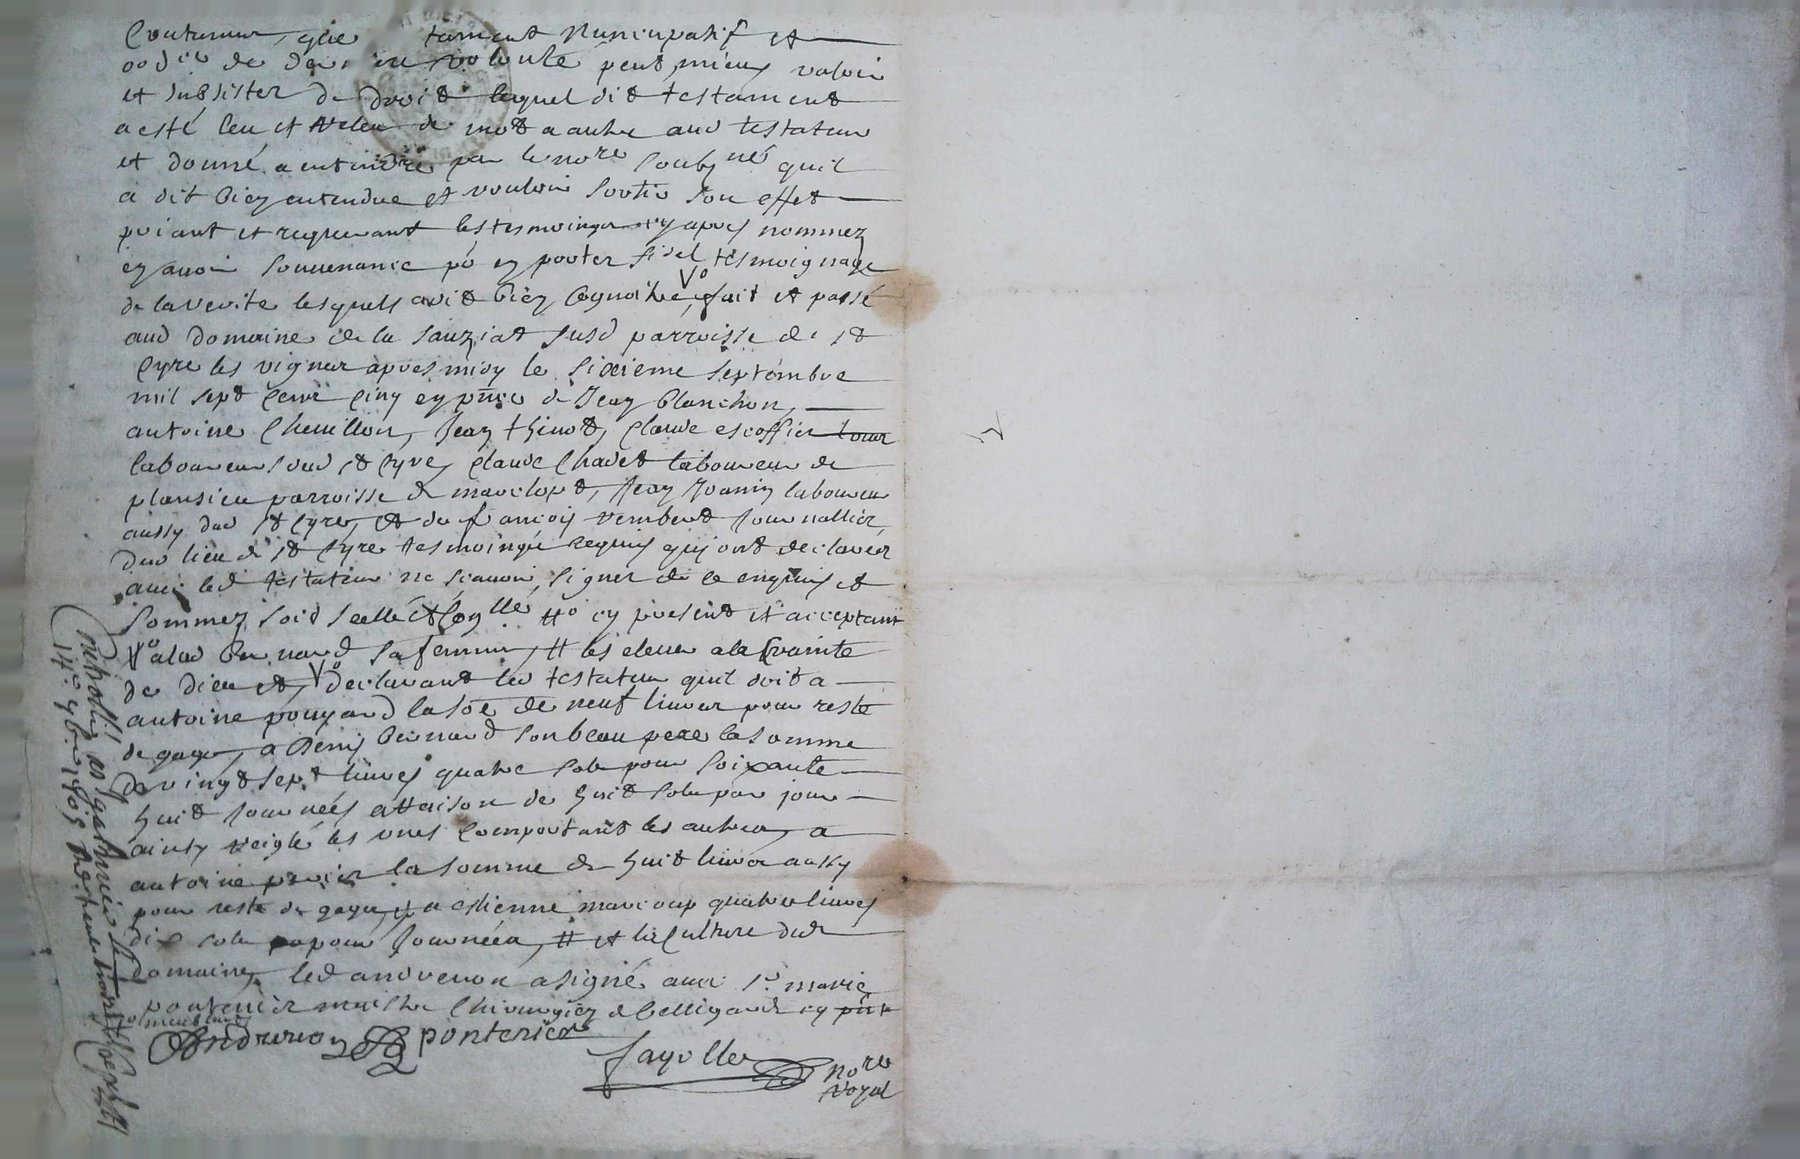 tament Nuncupatif et
de volonté peut mieux valoir
et subsister de droit lequel dit testament
a esté leu et releu de mot a autre aud testateur
et donné a entendre par le nore soubz né quil
a dit bien entendue et vouloir sortir son effet
priant et requerant les tesmoings cy apres nommez
en avoir souvenance po en porter fidel tesmoignage
de la verite lesquels a dit bien cognoitre Vo fait et passé
aud domaine de la sauziat susd parroisse de st
Cyre les vignes apres midy le sixieme septembre
mil sept cent cinq en pnce de Jean Blanchon
antoine Chevillon, Jean thinot, Claude escoffier tour
laboureurs dud st Cyre, Claude Chadet laboureur de
plansieu parroisse de marclopt, Jean Joanin laboureur
aussy dud st Cyre, et de françois rembert Journallier
dud lieu de st Cyre tesmoings requis quj ont declarér
avec led testateur ne scavoir signer de ce enquis et
sommez soit scellé et con llé #o cy present et acceptant
Vo alad Bernard sa femme, # les elever a la crainte
de dieu et, Vo declarant led testateur quil doit a
antoine pouyard la soe de neuf livres pour reste
de gages, a Denis Bernard son beau pere la somme
de vingt sept livres quatre sols pour soixante
huit Journées a raison de huit sols par jour
ainsy reiglé les unes comportant les autres, a
antoine la somme de huit livres aussy
pour reste de gages, a estienne marcoup quatre livres
dix sols pour Journées, # et la Culture dud
domaine, led androuon a signé avec sr marie
pontenier maistre Chirurgien de belligarde cy pnt
Androuon pontenier
fayolle nore
royal
14e 9bre 1705